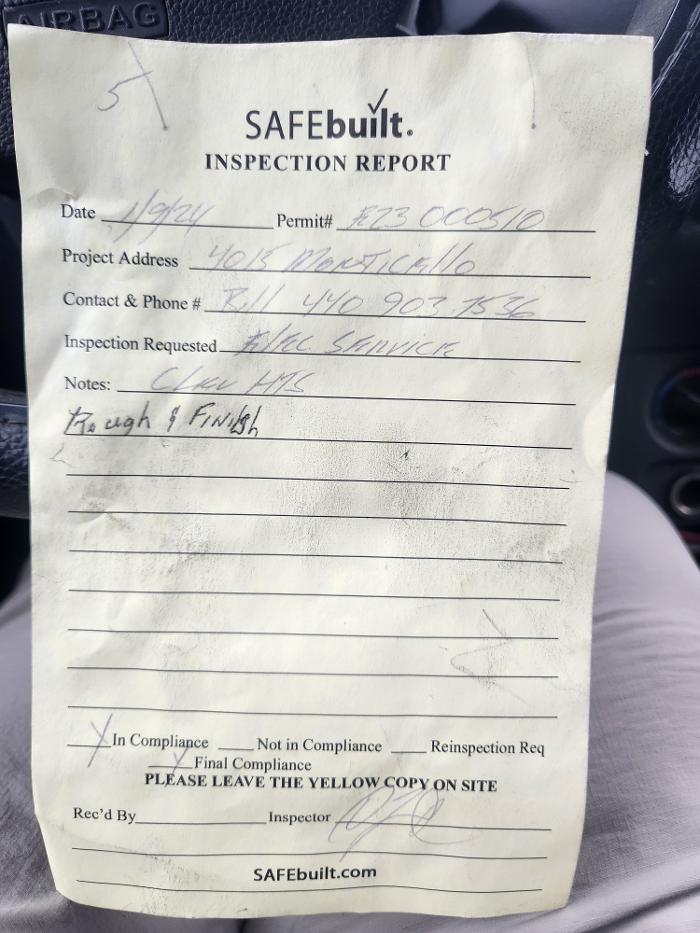 AIRBAG
5
SAFEbuilt.
INSPECTION REPORT
Date 1/9/24 Permit# E23 000510
Project Address 4015 Monticello
Contact & Phone # Bill 440 903 7536
Inspection Requested Elec Service
Notes: Clev HTS
Rough & Finish
X In Compliance ___ Not in Compliance ___ Reinspection Req
X Final Compliance
PLEASE LEAVE THE YELLOW COPY ON SITE
Rec'd By Inspector
SAFEbuilt.com